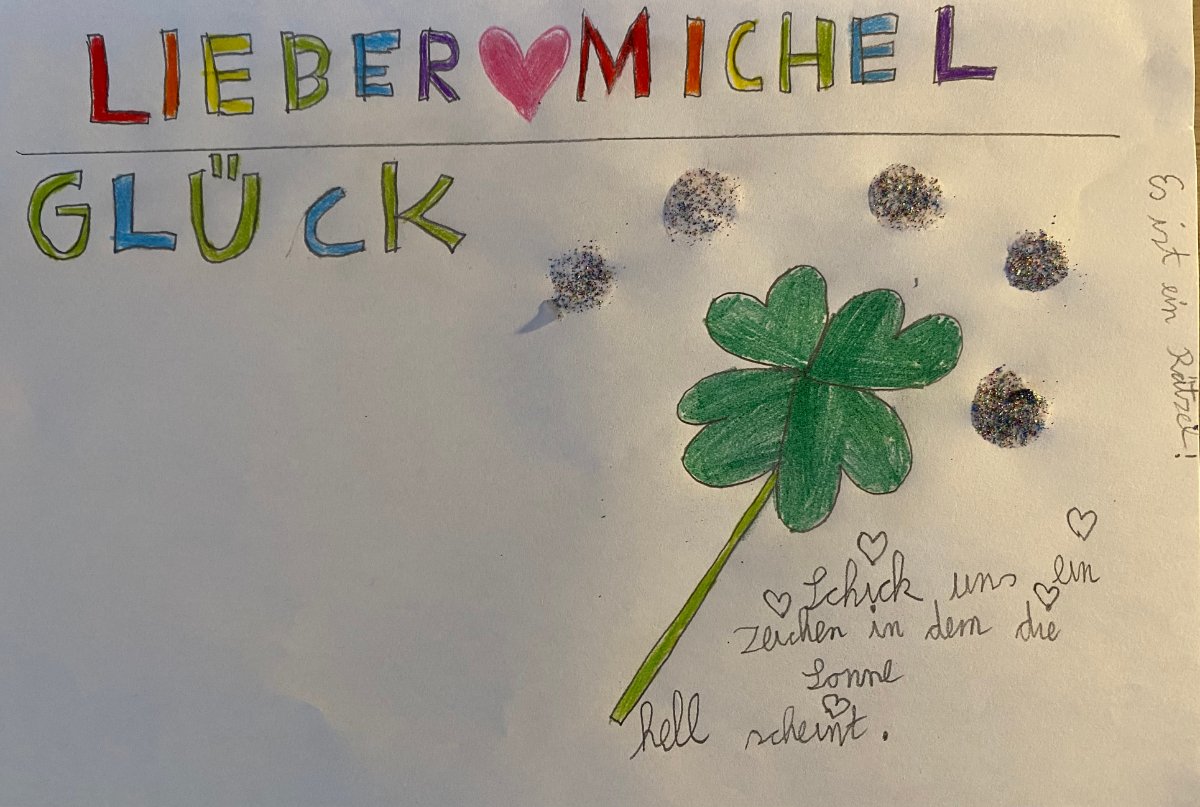 LIEBER MICHEL
GLÜCK
Schick uns ein
zeichen in dem die
Sonne
hell scheint.
Es ist ein Rätzel!